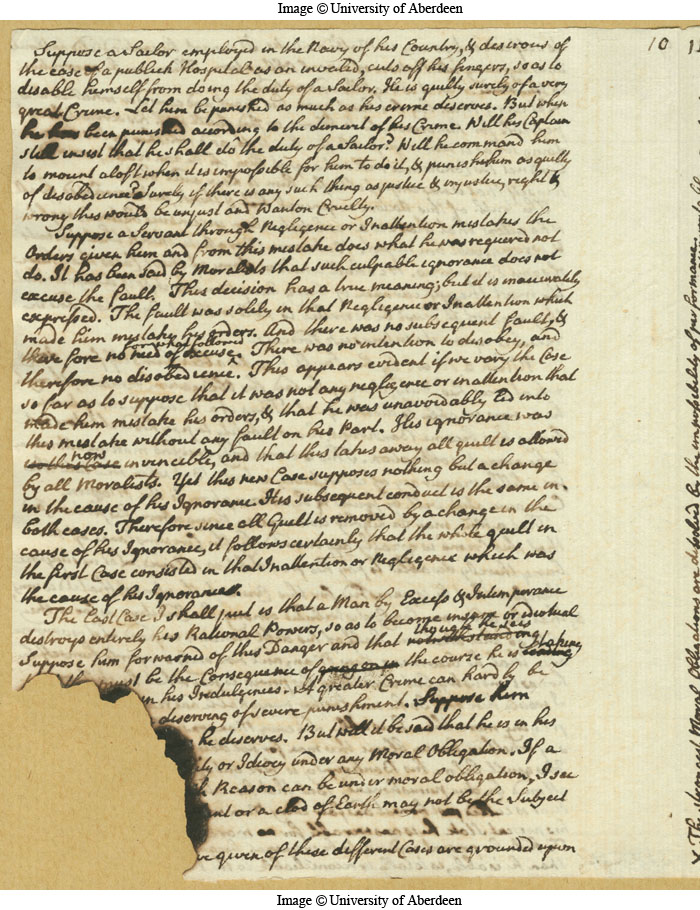 Image © University of Aberdeen
10
Suppose a Sailor employed in the Navy of his Country, & desirous of
the ease of a publick Hospital as an invalid, cuts off his fingers, so as to
disable himself from doing the duty of a Sailor. He is guilty surely of a very
great Crime. Let him be punished as much as his crime deserves. But when
he has been punished according to the demerit of his Crime. Will his Captain
still insist that he shall do the duty of a Sailor? Will he command him
to mount aloft when it is impossible for him to do it, & punish him as guilty
of disobedience? Surely if there is any such thing as justice & injustice, right &
wrong this would be unjust and wanton Cruelty.
Suppose a Servant through Negligence or Inattention mistakes the
Orders given him and from this mistake does what he was required not
do. It has been said by Moralists that such culpable ignorance does not
excuse the fault. This decision has a true meaning; but it is inaccurately
expressed. The fault was solely in that Negligence or Inattention which
made him mistake his orders. And there was no subsequent fault, &
for what followed
therefore no need of excuse. There was no intention to disobey, and
therefore no disobedience. This appears evident if we vary the Case
so far as to suppose that it was not any negligence or inattention that
made him mistake his orders, & that he was unavoidably led into
this mistake without any fault on his Part. His ignorance was
now
in this Case invincible, and that this takes away all guilt is allowed
by all Moralists. Yet this new Case supposes nothing but a change
in the cause of his Ignorance. His subsequent conduct is the same in
both cases. Therefore since all Guilt is removed by a change in the
cause of his Ignorance, it follows certainly that the whole guilt in
the first Case consisted in that Inattention or Negligence which was
the cause of his Ignorance.
The Last Case I shall put is that a Man by Excess & Intemperance
destroys entirely his Rational Powers, so as to become insane or idiotical
though he sees
Suppose him forwarned of this Danger and that notwithstanding
taking
must be the Consequence of the course he is
in his Indulgence. A greater Crime can hardly be
deserving of severe punishment. Suppose him
he deserves. But will it be said that he is in his
or Idiocy under any Moral Obligation. If a
Reason can be under moral obligation, I see
or a clod of Earth may not be the Subject
given of these different Cases are grounded upon
Image © University of Aberdeen